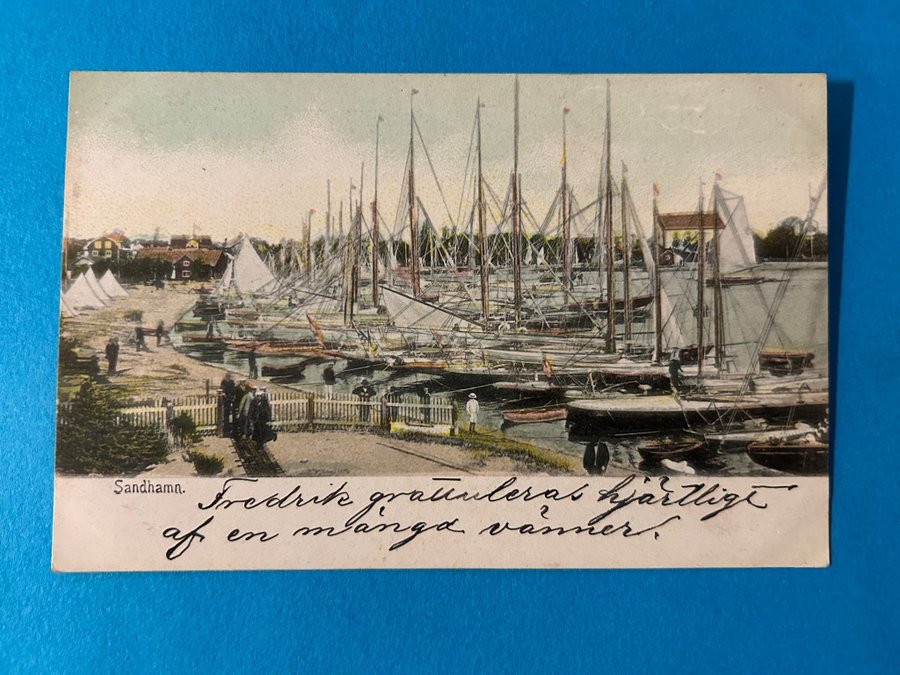 Sandhamn.
Fredrik gratuleras hjärtligt
af en mängd vänner!